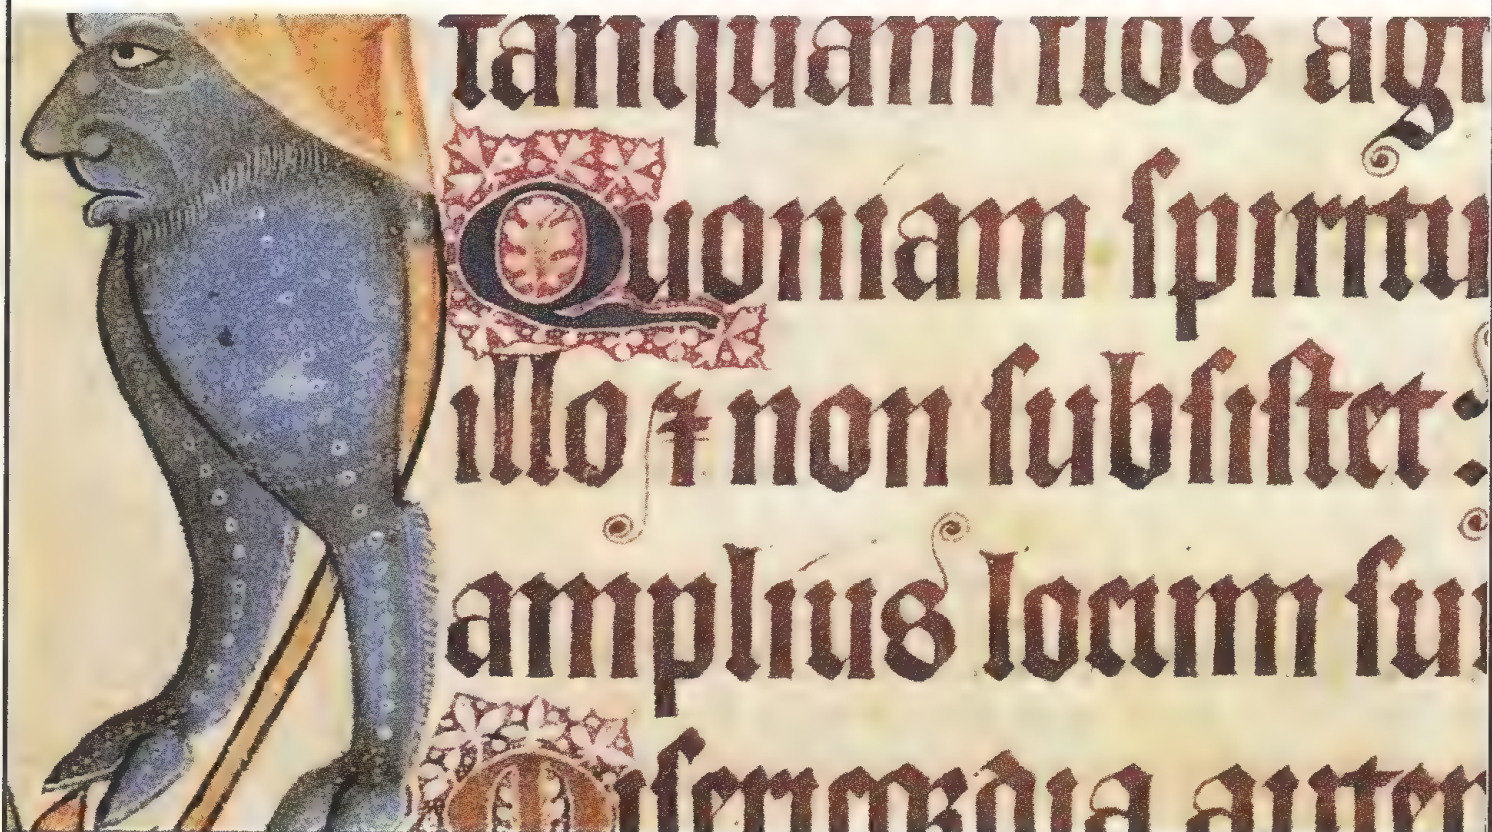 tanquam flos agr
Quoniam spiritu
illo ⁊ non subsistet :
amplius locum su
Misericordia autem